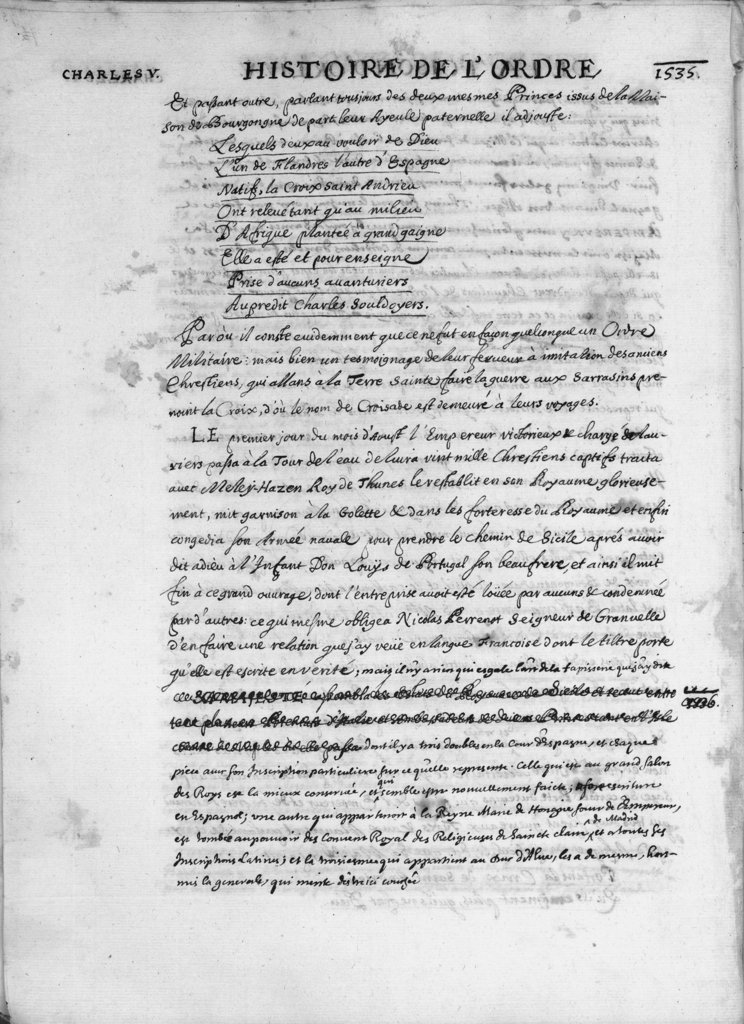 CHARLES V. HISTOIRE DE L'ORDRE 1535.
Et passant outre, parlant tousjours des deux mesmes Princes issus de la Mai-
son de Bourgongne de part leur Ayeule paternelle il adjouste:
Lesquels deux au vouloir de Dieu
L'un de Flandres l'autre d'Espagne
Natifs, la Croix saint Andrieu
Ont relevé tant qu'au milieu
D'Afrique plantée à grand gaigne
Elle a esté et pour enseigne
Prise d'aucuns avanturiers
Au predit Charles souldoyers.
Par où il conste evidemment que ce ne fut en façon quelconque un Ordre
Militaire: mais bien un tesmoignage de leur ferveur a imitation des anciens
Chrestiens, qui allans à la Terre Sainte faire la guerre aux Sarrasins pre-
noint la Croix, d'où le nom de Croisade est demeuré à leurs voyages.
LE premier jour du mois d'Aoust l'Empereur victorieux & chargé de lau-
riers passa à la Tour de l'eau delivra vint mille Chrestiens captifs traita
avec Meley-Hazen Roy de Thunes le restablit en son Royaume glorieuse-
ment, mit garnison à la Golette & dans les forteresse du Royaume et enfin
congedia son Armée navale pour prendre le chemin de Sicile aprés avoir
dit adieu à l'Infant Don Louÿs de Portugal son beaufrere, et ainsi il mit
fin à ce grand ouvrage, dont l'entreprise avoit esté loüée par aucuns & condemnée
par d'autres: ce qui mesme obligea Nicolas Perrenot Seigneur de Granvelle
d'en faire une relation que j'ay veüe en langue Francoise dont le tiltre porte
qu'elle est escrite en verité; mais il n'y a rien qui esgale l'art de la tapisserie qui s'ay dite
1536.
dont il y a trois doubles en la Cour d'Espagne, et chaque
piece avec son Inscription particuliere sur ce qu'elle represente. Celle qui est au grand salon
des Roys est la mieux conservée, et semble estre nouvellement faicte; escriture
en Espagnol; une autre qui appartenoit à la Reyne Marie de Hongrie sœur de l'Empereur,
est tombée au pouvoir des Convent Royal des Religieuses de Saincte Claire de Madrid, et a toutes ses
Inscriptions Latines; et la troisiesme qui appartient au Duc d'Alve, les a de mesme, hors-
mis la generale, qui merite d'estre ici couchée